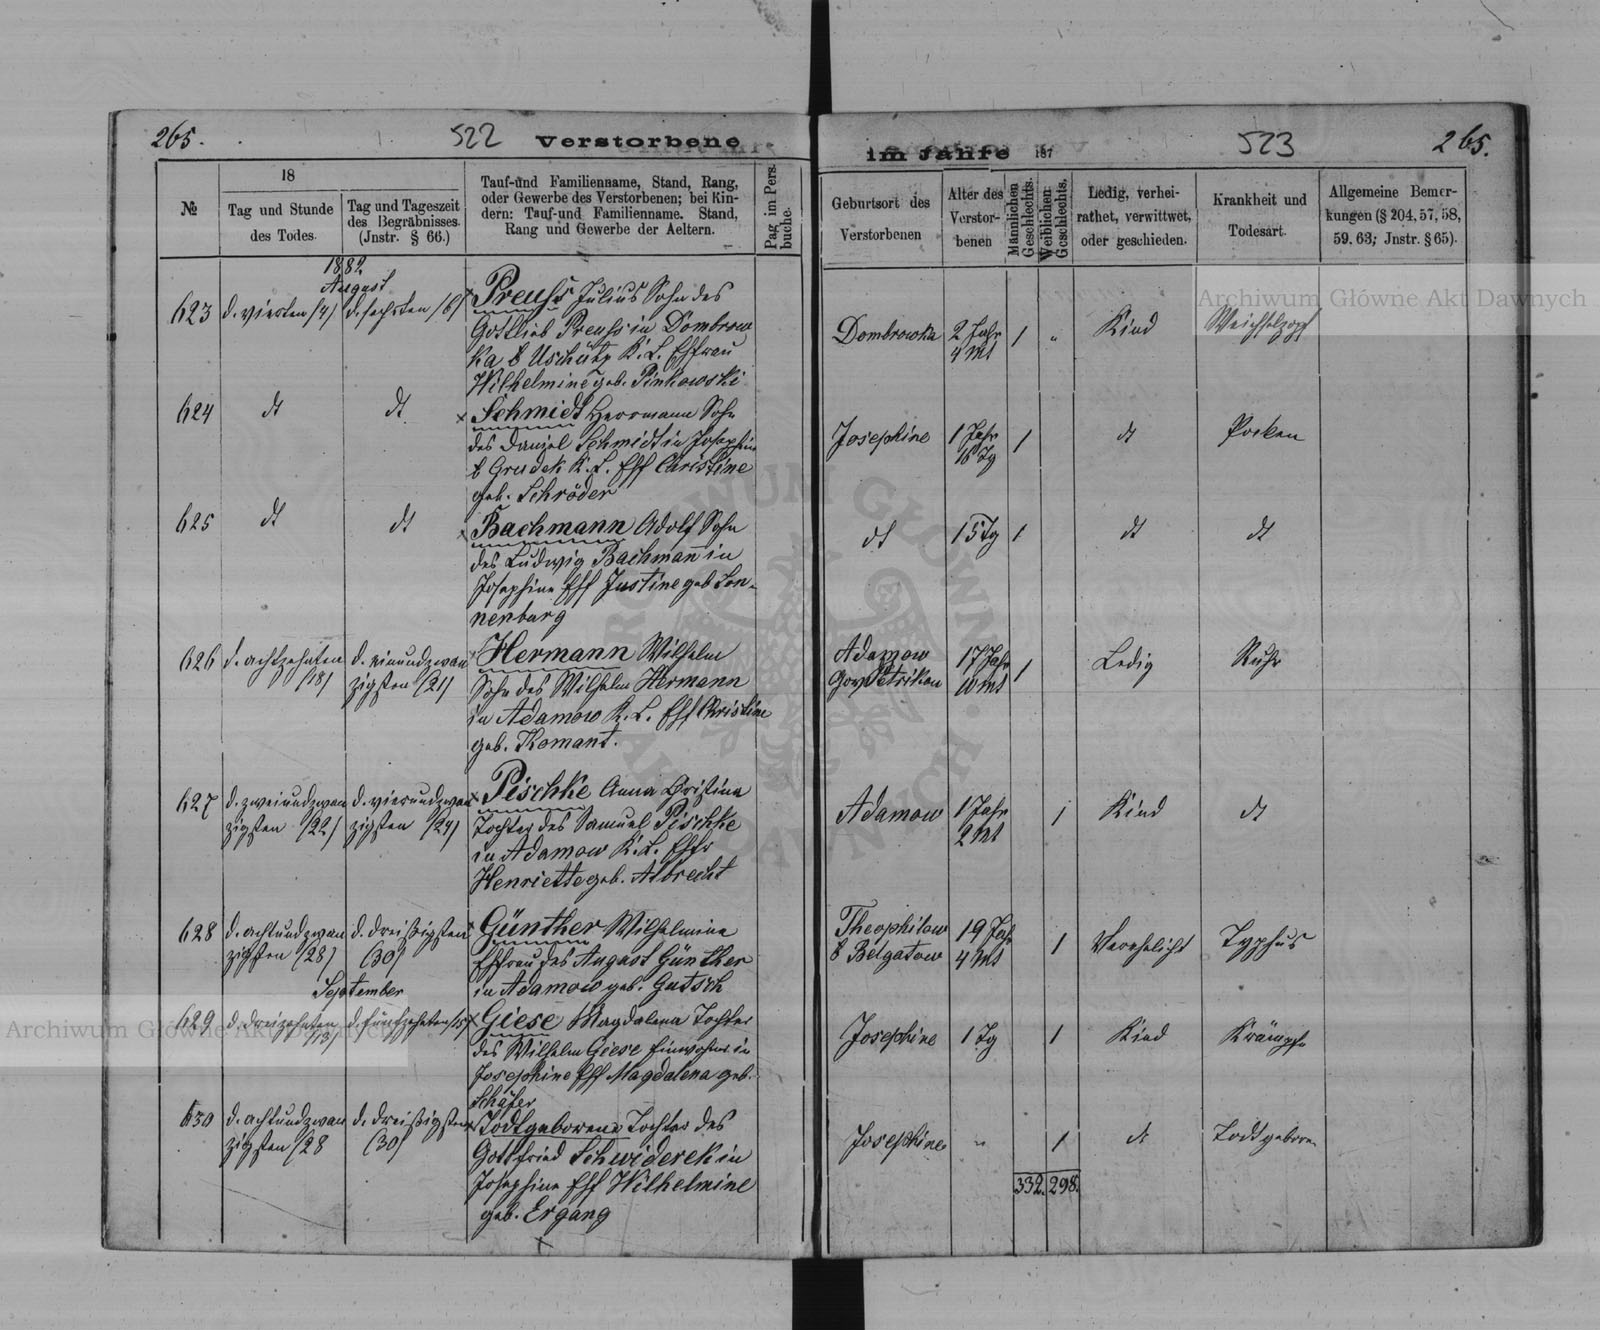 265.
522
Verstorbene
№
18
Tag und Stunde
des Todes.
Tag und Tageszeit
des Begräbnisses.
(Jnstr. § 66.)
Tauf-und Familienname, Stand, Rang,
oder Gewerbe des Verstorbenen; bei Kin-
dern: Tauf-und Familienname. Stand,
Rang und Gewerbe der Aeltern.
Pag im Pers.
buche.
1882
August
623
d. vierten /4/
d. sechsten /6/
Preuhs Julius Sohn des
Gottlieb Preuhs in Dombrow
ka b Uschütz K. L. Ehfrau
Wilhelmine geb. Pinkowski
624
dt
dt
Schmidt Herrmann Sohn
des Daniel Schmidt in Josephin
b Grudek K. L. Ehf Christine
geb. Schröder
625
dt
dt
Bachmann Adolf Sohn
des Ludwig Bachmañ in
Josephine Ehf Justine geb Son-
nenburg
626
d. achtzehnten
/18/
d. einundzwan
zigsten /21/
Hermann Wilhelm
Sohn des Wilhelm Hermann
in Adamow K. L. Ehf Christine
geb. Komant.
627
d. zweiundzwan
zigsten /22/
d. vierundzwan
zigsten /24/
Pischke Anna Christina
Tochter des Samuel Pischke
in Adamow K. L. Ehfr
Henriette geb. Albrecht
628
d. achtundzwan
zigsten /28/
d. dreißigsten
/30/
Günther Wilhelmine
Ehfrau des August Günther
in Adamow geb. Gutsch
September
629
d. dreizehnten
/13/
d. fünfzehnten /15/
Giese Magdalena Tochter
des Wilhelm Giese Einwohner in
Josephine Ehf Magdalena geb.
Schäfer
630
d. achtundzwan
zigsten /28
d. dreißigsten
/30/
Todtgeborene Tochter des
Gottfried Schwiderek in
Josephine Ehf Wilhelmine
geb. Ergang
im Jahre 187
523
265.
Geburtsort des
Verstorbenen
Alter des
Verstor-
benen
Männlichen
Geschlechts.
Weiblichen
Geschlechts.
Ledig, verhei-
rathet, verwittwet,
oder geschieden.
Krankheit und
Todesart.
Allgemeine Bemer-
kungen (§ 204, 57, 58,
59. 63; Jnstr. § 65).
Dombrowka
2 Jahr
4 Mt
1
"
Kind
Weichselzopf
Josephine
1 Jahr
16 Tg
1
dt
Pocken
dt
15 Tg
1
dt
dt
Adamow
Gov Petrikau
17 Jahr
10 Mt
1
Ledig
Ruhr
Adamow
1 Jahr
2 Mt
1
Kind
dt
Theophilow
b Belgatow
19 Jahr
4 Mt
1
Verehelicht
Typhus
Josephine
1 Tg
1
Kind
Krämpfe
Josephine
"
1
dt
Todtgeboren
332. 298.
Archiwum Główne Akt Dawnych
Archiwum Główne Akt Dawnych
ARCHIWUM GŁÓWNE AKT DAWNYCH